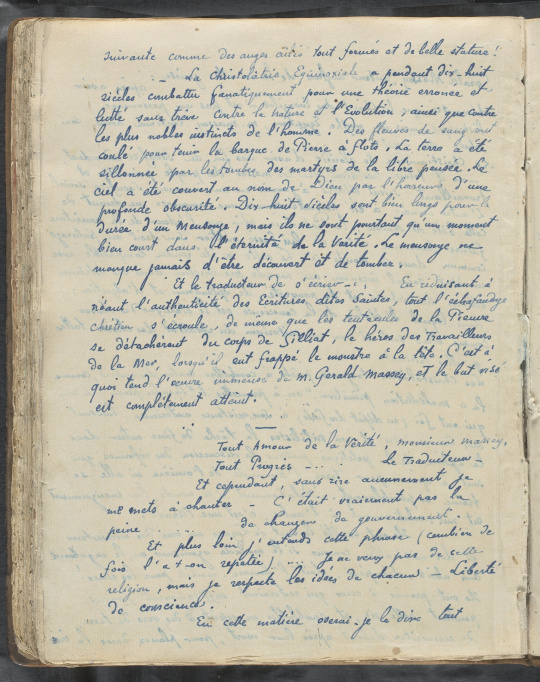 suivante comme des anges ailés tout formés et de belle stature!
_ La Christolâtrie Equinoxiale a pendant dix-huit
siècles combattu fanatiquement pour une théorie erronée et
lutté sans trève contre la nature et l'Evolution, ainsi que contre
les plus nobles instincts de l'homme. Des fleuves de sang ont
coulé pour tenir la barque de Pierre à flots. La terre a été
sillonnée par les tombes des martyrs de la libre pensée. Le
ciel a été couvert au nom de Dieu par l'horreur d'une
profonde obscurité. Dix-huit siècles sont bien longs pour la
durée d'un Mensonge, mais ils ne sont pourtant qu'un moment
bien court dans l'éternité de la Vérité. Le mensonge ne
manque jamais d'être découvert et de tomber.
Et le traducteur de s'écrier - : En réduisant à
néant l'authenticité des Ecritures dites Saintes, tout l'échafaudage
chrétien s'écroule, de même que les tentacules de la Pieuvre
se détachèrent du corps de Gilliat, le héros des Travailleurs
de la Mer, lorsqu'il eut frappé le monstre à la tête. C'est à
quoi tend l'œuvre immense de M. Gerald Massey, et le but visé
est complètement atteint.
Tout Amour de la Vérité, monsieur Massey,
Tout Progrès - ... . Le Traducteur -
Et cependant, sans rire aucunement je
me mets à chanter - C'était vraiement pas la
peine ........ de changer de gouvernement.
Et plus loin j'entends cette phrase (combien de
fois l'a t-on répétée) ... Je ne veux pas de cette
religion, mais je respecte les idées de chacun - Liberté
de conscience.
En cette matière oserai-je le dire tout